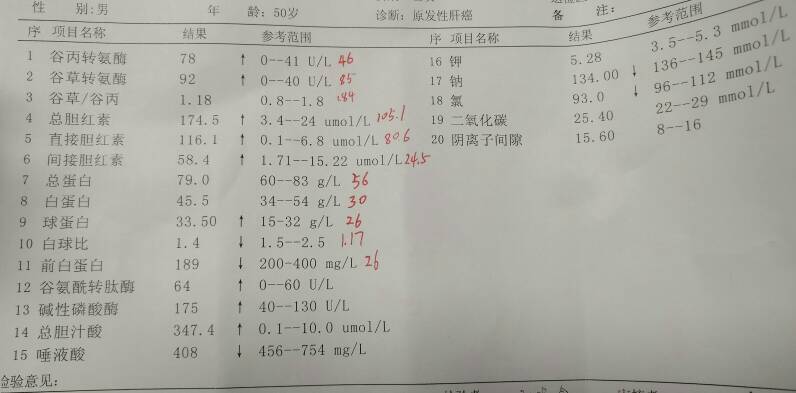 性 别:男 年 龄:50岁 诊断:原发性肝癌 备 注:
序 项目名称 结果 参考范围 序 项目名称 结果 参考范围
1 谷丙转氨酶 78 ↑ 0--41 U/L 46 16 钾 5.28 3.5--5.3 mmol/L
2 谷草转氨酶 92 ↑ 0--40 U/L 85 17 钠 134.00 ↓ 136--145 mmol/L
3 谷草/谷丙 1.18 0.8--1.8 1.84 18 氯 93.0 ↓ 96--112 mmol/L
4 总胆红素 174.5 ↑ 3.4--24 umol/L 105.1 19 二氧化碳 25.40 22--29 mmol/L
5 直接胆红素 116.1 ↑ 0.1--6.8 umol/L 80.6 20 阴离子间隙 15.60 8--16
6 间接胆红素 58.4 ↑ 1.71--15.22 umol/L 24.5
7 总蛋白 79.0 60--83 g/L 56
8 白蛋白 45.5 34--54 g/L 30
9 球蛋白 33.50 ↑ 15-32 g/L 26
10 白球比 1.4 ↓ 1.5--2.5 1.17
11 前白蛋白 189 ↓ 200-400 mg/L 26
12 谷氨酰转肽酶 64 ↑ 0--60 U/L
13 碱性磷酸酶 175 ↑ 40--130 U/L
14 总胆汁酸 347.4 ↑ 0.1--10.0 umol/L
15 唾液酸 408 ↓ 456--754 mg/L
检验意见: